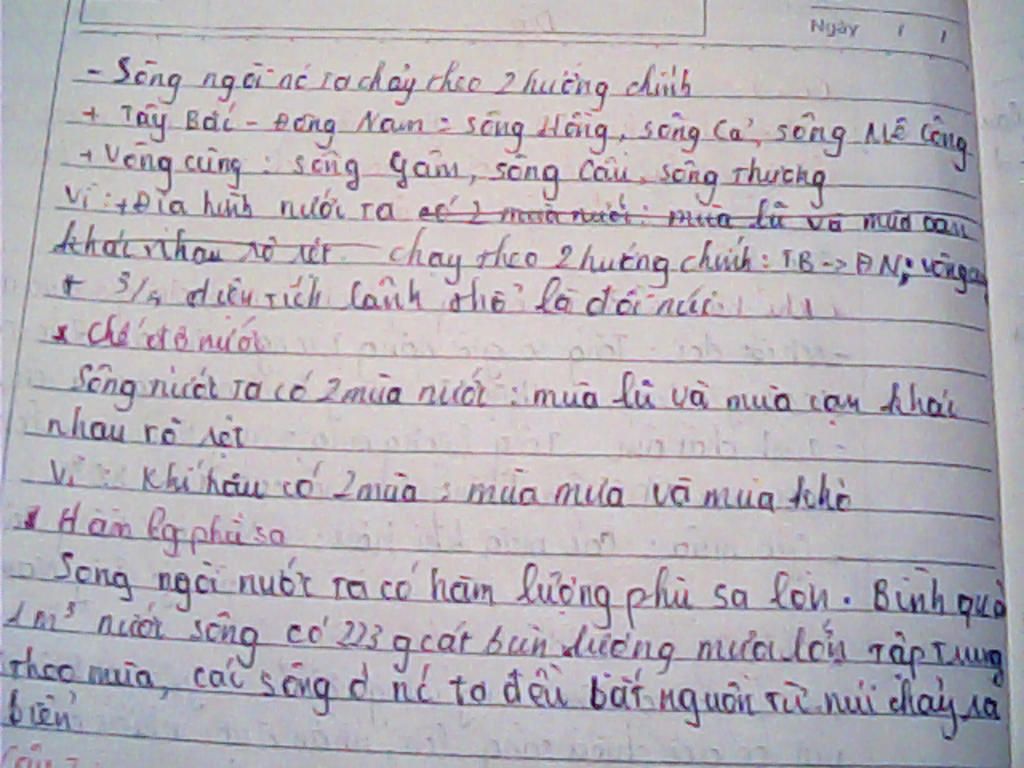 Ngày / /
- Sông ngòi nc ta chảy theo 2 hướng chính
+ Tây Bắc - Đông Nam : sông Hồng, sông Cả, sông Mê Công
+ Vòng cung : sông Gâm, sông Cầu, sông Thương
Vì : + Địa hình nước ta có 2 mùa nước : mùa lũ và mùa cạn
khác nhau rõ rệt chạy theo 2 hướng chính : TB -> ĐN; vòng cu
+ 3/4 diện tích lãnh thổ là đồi núi
* Chế độ nước
Sông nước ta có 2 mùa nước : mùa lũ và mùa cạn khác
nhau rõ rệt
Vì : Khí hậu có 2 mùa : mùa mưa và mùa khô
* Hàm lg phù sa
Sông ngòi nước ta có hàm lượng phù sa lớn. Bình quâ
1 m³ nước sông có 223 g cát bùn lượng mưa lớn tập trung
theo mùa, các sông ở nc ta đều bắt nguồn từ núi chảy ra
biển
Câu